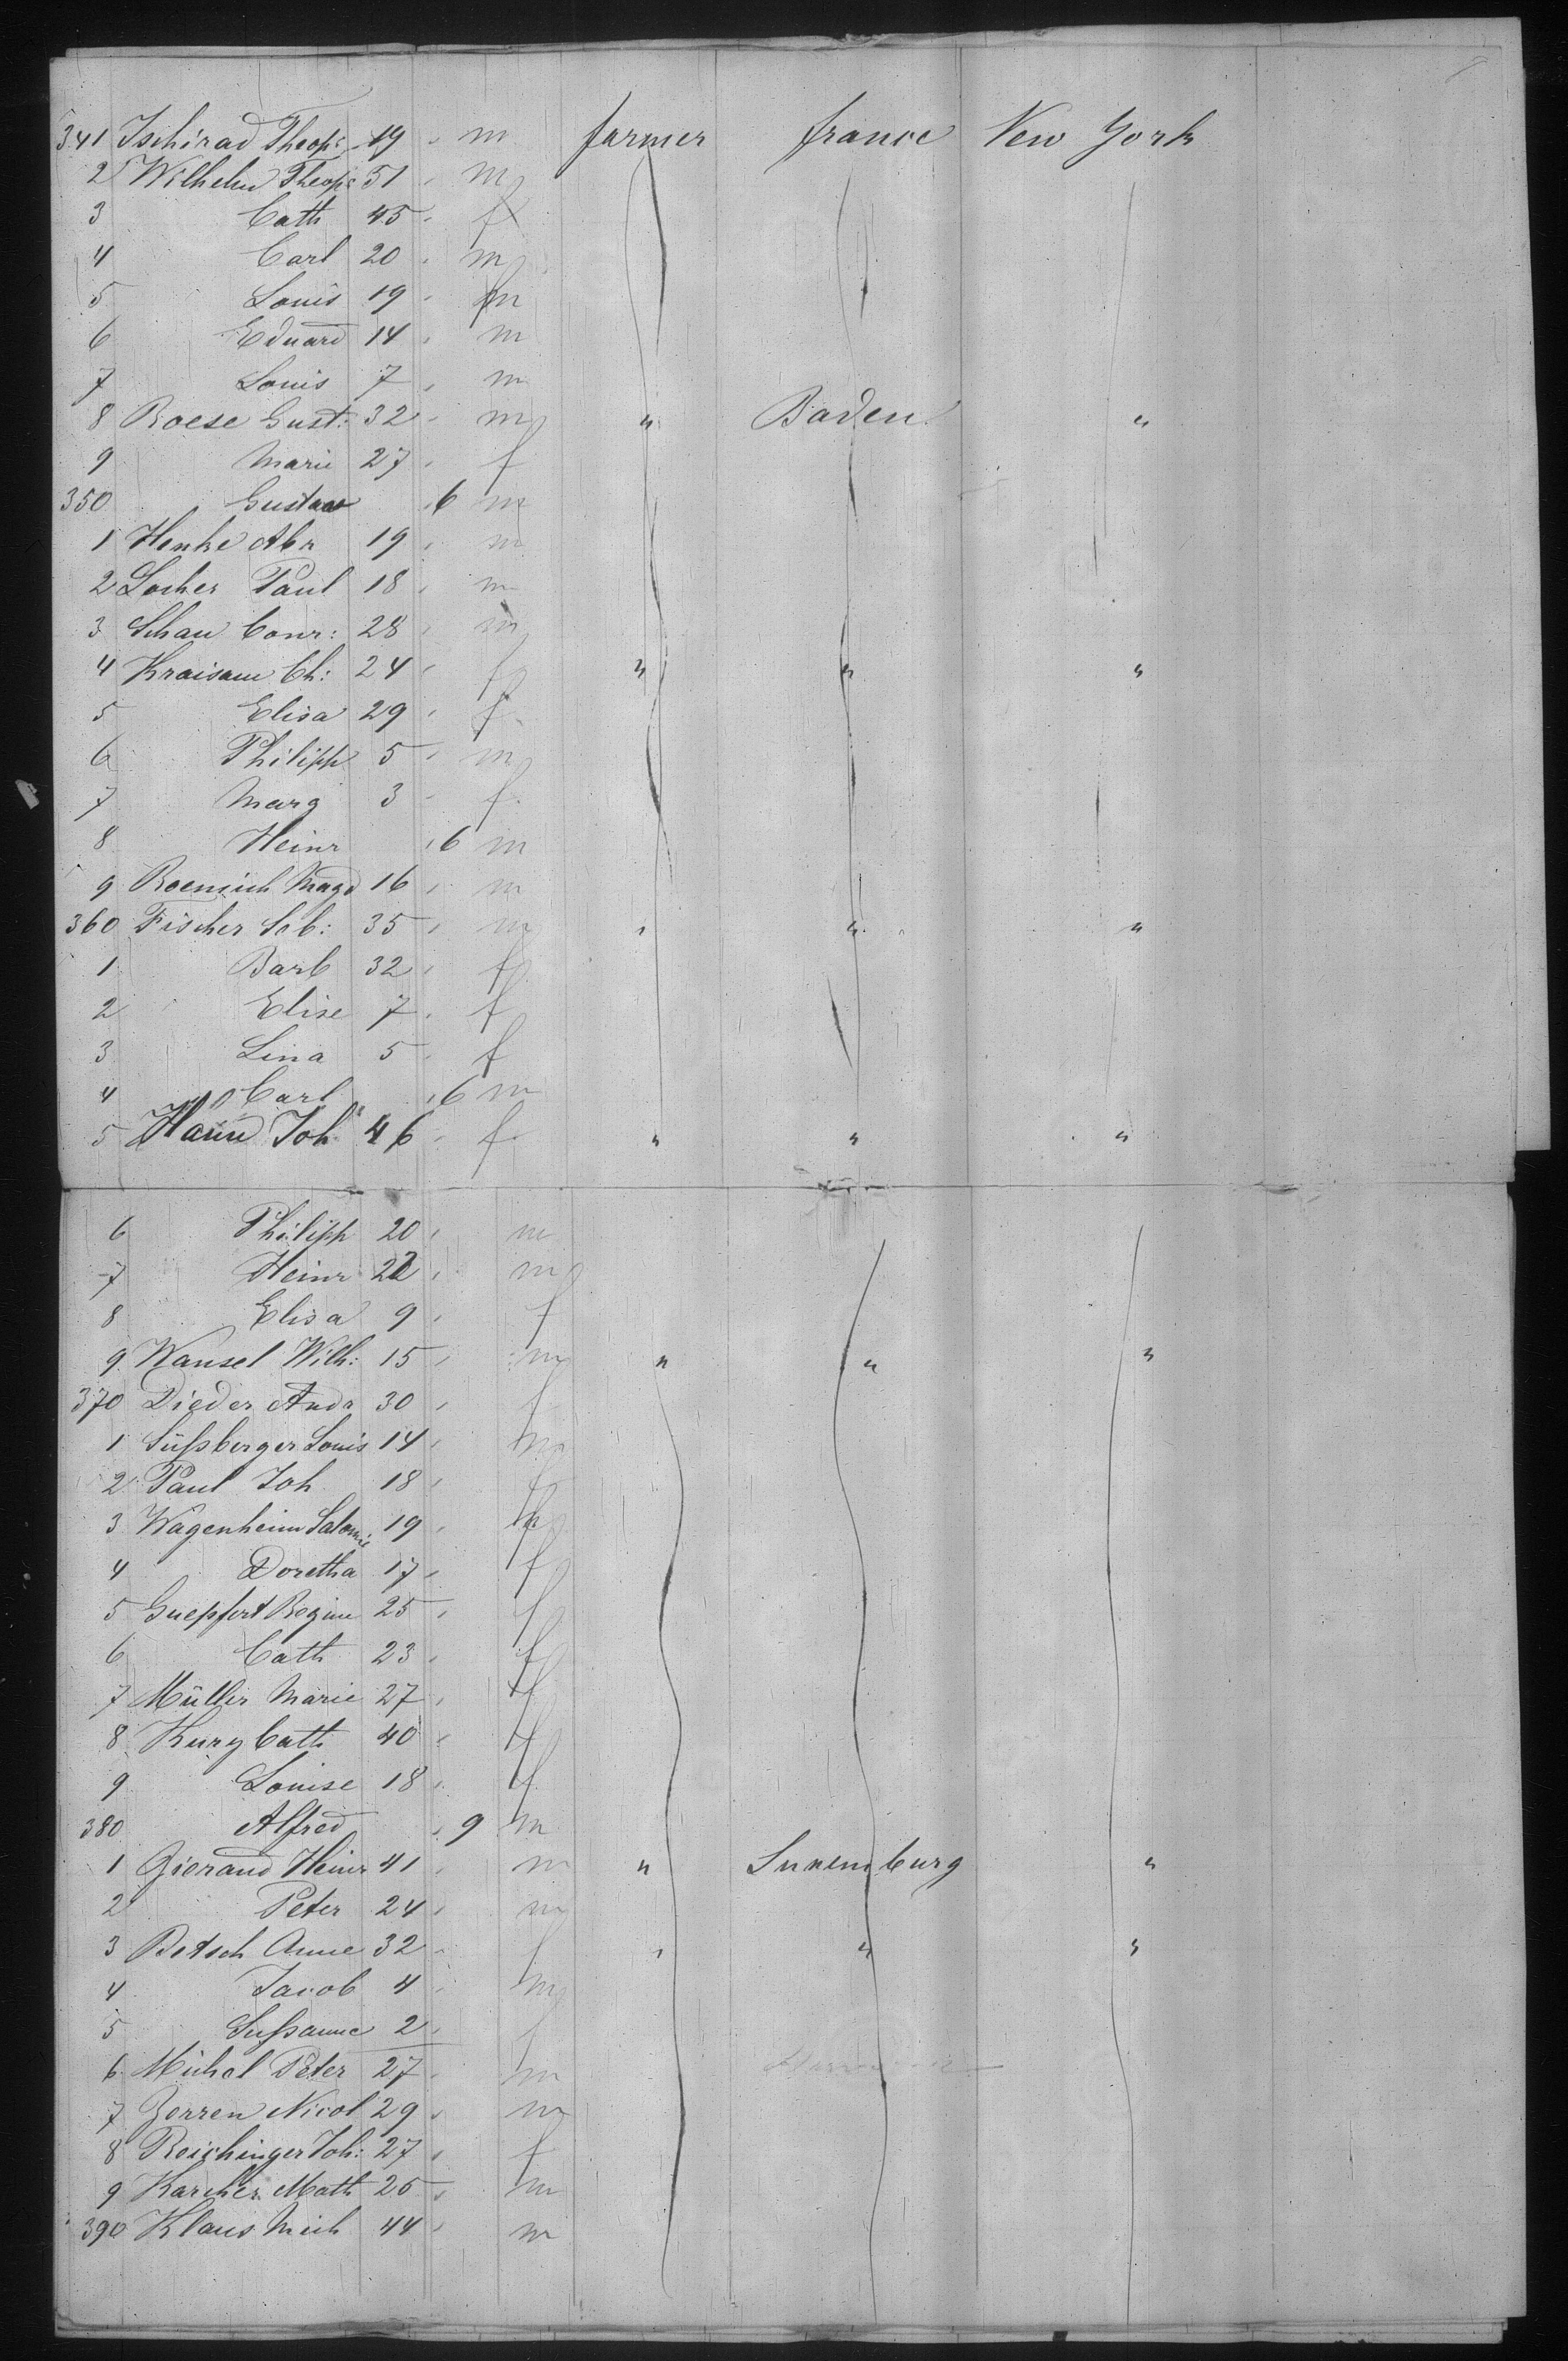 341 Tschirad Theop: 19 m farmer france New York
2 Wilhelm Theop: 51 m
3 Cath 45 f
4 Carl 20 m
5 Louis 19 m
6 Eduard 14 m
7 Louis 7 m
8 Roese Gust: 32 m " Baden "
9 Marie 27 f
350 Gustav 6 m
1 Henke Abr 19 m
2 Locher Paul 18 m
3 Schau Conr: 28 m
4 Kraisam Ch: 24 f " " "
5 Elisa 29 f
6 Philipp 5 m
7 Marg 3 f
8 Heinr 6 m
9 Roemich Magd 16 m
360 Fischer Seb: 35 m " " "
1 Barb 32 f
2 Elise 7 f
3 Lina 5 f
4 Carl 6 m
5 Joh 46 f " " "
6 Philipp 20 m
7 Heinr 22 m
8 Elisa 9 f
9 Wansel Wilh: 15 m " " "
370 Dieder Andr 30 f
1 Süßberger Louis 14 m
2 Paul Joh 18 f
3 Wagenheim Salomé 19 f
4 Doretha 17 f
5 Guepfert Regine 25 f
6 Cath 23 f
7 Müller Marie 27 f
8 Kury Cath 40 f
9 Louise 18 f
380 Alfred 9 m
1 Gieraud Heinr 41 m " Luxemburg "
2 Peter 24 m
3 Betsch Anne 32 f " " "
4 Jacob 4 m
5 Sußanne 2 f
6 Michel Peter 27 m
7 Zorren Nicol 29 m
8 Reichinger Joh: 27 f
9 Karcher Math 25 m
390 Klaus Mich 44 m